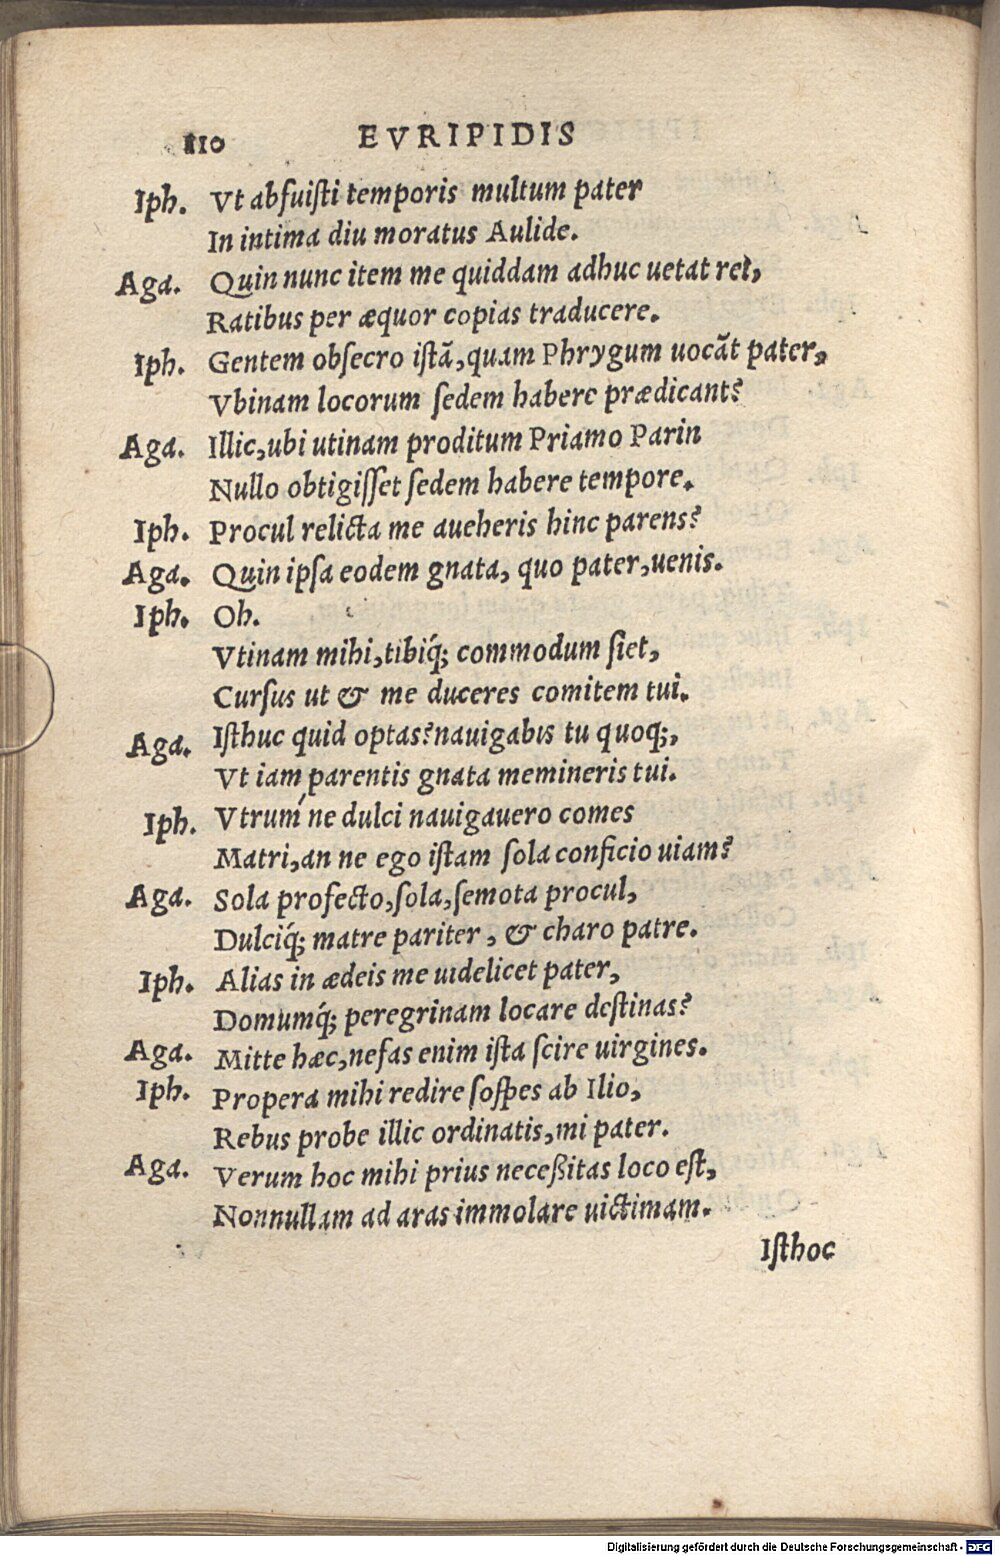 110 EVRIPIDIS
Iph. Vt abfuiſti temporis multum pater
In intima diu moratus Aulide.
Aga. Quin nunc item me quiddam adhuc uetat rei,
Ratibus per æquor copias traducere.
Iph. Gentem obſecro iſtã, quam Phrygum uocãt pater,
Vbinam locorum ſedem habere prædicant?
Aga. Illic, ubi utinam proditum Priamo Parin
Nullo obtigiſſet ſedem habere tempore.
Iph. Procul relicta me aueheris hinc parens?
Aga. Quin ipſa eodem gnata, quo pater, uenis.
Iph. Oh.
Vtinam mihi, tibiq́; commodum ſiet,
Curſus ut & me duceres comitem tui.
Aga. Iſthuc quid optas? nauigabis tu quoq;,
Vt iam parentis gnata memineris tui.
Iph. Vtruḿ ne dulci nauigauero comes
Matri, an ne ego iſtam ſola conficio uiam?
Aga. Sola profecto, ſola, ſemota procul,
Dulciq́; matre pariter, & charo patre.
Iph. Alias in ædeis me uidelicet pater,
Domumq́; peregrinam locare deſtinas?
Aga. Mitte hæc, nefas enim iſta ſcire uirgines.
Iph. Propera mihi redire ſoſpes ab Ilio,
Rebus probe illic ordinatis, mi pater.
Aga. Verum hoc mihi prius neceßitas loco eſt,
Nonnullam ad aras immolare uictimam.
Iſthoc
Digitalisierung gefördert durch die Deutsche Forschungsgemeinschaft - DFG